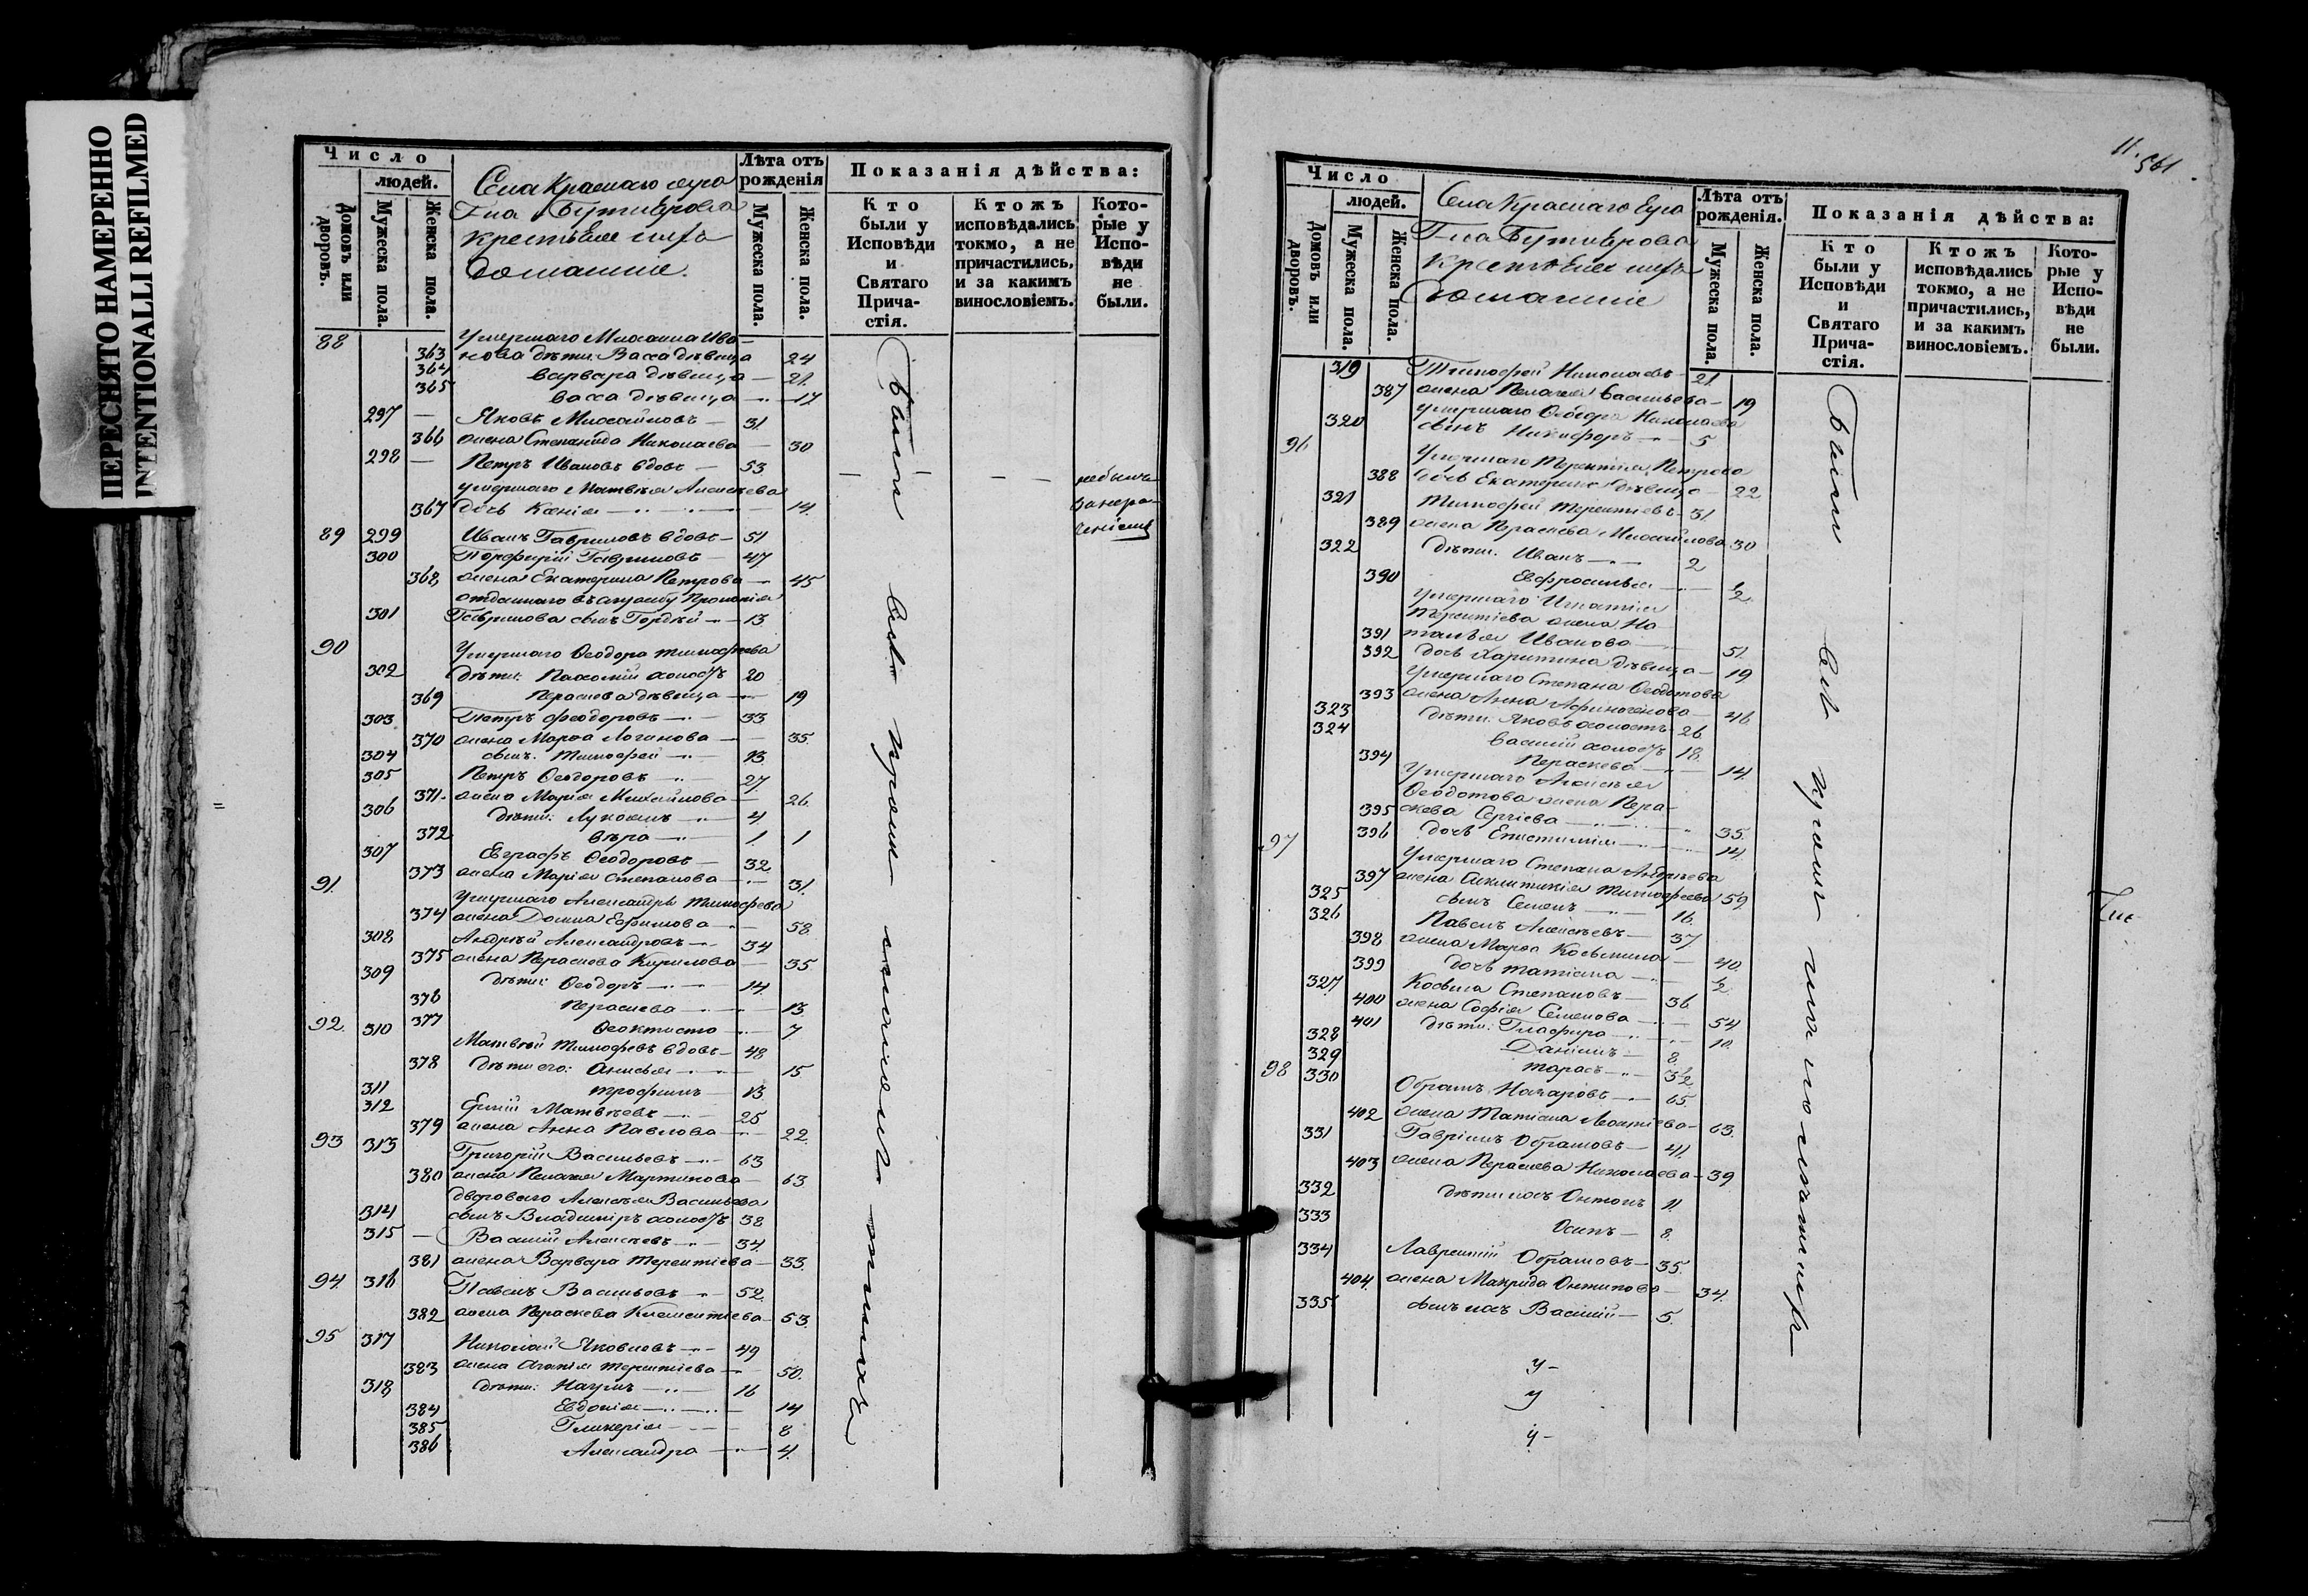 ПЕРЕСНЯТО НАМЕРЕННО
INTENTIONALLI REFILMED
Число
людей.
Домовъ или дворовъ.
Мужеска пола.
Женска пола.
Села Краснаго
Г-на Бутищрова
крестьяне
домашніе.
Лѣта отъ рожденія
Мужеска пола.
Женска пола.
Показанія дѣйства:
Кто были у Исповѣди и Святаго Прича-стія.
Ктожъ исповѣдались токмо, а не причастились, и за какимъ винословіемъ.
Кото-рые у Испо-вѣди не были.
88 Умершаго Михаила Ива-
363 нова дѣти: Васса дѣвица 24
364 Варвара дѣвица — 21.
365 Васса дѣвица — 17
297 — Яковъ Михайловъ — 31.
366 жена Степанида Николаева — 30
298 — Петръ Ивановъ вдовъ — 53
умершаго Матвѣя Алексѣева
367 дочь Ксенія — 14.
89 299 Иванъ Гавриловъ вдовъ — 51
300 Порфирій Гавриловъ — 47.
368 жена Екатерина Петрова — 45
отданнаго въ службу Прокопія
301 Гаврилова сынъ Гордѣй — 13
90 Умершаго Ѳеодора Тимофѣева
302 дѣти: Пахомій холостъ 20
369 Параскева дѣвица — 19
303 Петръ Феодоровъ — 33
370 жена Марѳа Логинова — 35.
304 сынъ: Тимофей — 13
305 Петръ Ѳеодоровъ — 27.
371. жена Марія Михайлова — 26.
306 дѣти: Лукоянъ — 4.
372 Вѣра — 1
307 Евграфъ Ѳеодоровъ — 32
373 жена Марія Степанова — 31.
91. Умершаго Александра Тимофеева
374 жена Домна Ефимова — 58.
308 Андрей Александровъ — 34
375 жена Параскева Кирилова — 35
309 дѣти: Ѳеодоръ — 14.
376 Параскева — 13
377 Ѳеоктиста — 7
92. 310 Матвѣй Тимофевъ вдовъ — 48
378 дѣти его: Анисья — 15
311 Трофимъ — 13
312 Матвѣевъ — 25
379 жена Анна Павлова — 22.
93 313 Григорій Васильевъ — 63
380 жена Пелагея Мартинова — 63
двороваго Алексѣя Васильева
314 сынъ Владиміръ холостъ 38
315 — Василій Алексѣевъ — 34.
381 жена Варвара Терентіева — 33.
94. 316 Павелъ Васильевъ — 52.
382 жена Параскева Клементіева — 53.
95 317 Николай Яковлевъ — 49
383 жена Агапія Терентіева — 50.
318 дѣти: Наумъ — 16
384 Евдокія — 14
385 Гликерія — 8
386 Александра — 4.
Были
вси
не былъ
за нера-
деніемъ
11. 561
Число
людей.
Домовъ или дворовъ.
Мужеска пола.
Женска пола.
Села Краснаго
Г-на Бутищрова
крестьяне
домашніе
Лѣта отъ рожденія.
Мужеска пола.
Женска пола.
Показанія дѣйства:
Кто были у Исповѣди и Святаго Прича-стія.
Ктожъ исповѣдались токмо, а не причастились, и за какимъ винословіемъ.
Кото-рые у Испо-вѣди не были.
319 Тимофей Николаевъ — 21.
387 жена Пелагея Васильева — 19
умершаго Ѳеодора Николаева
320 сынъ Никифоръ — 5
96 Умершаго Терентія Петрова
388 дочь Екатерина дѣвица — 22
321 Тимофей Терентіевъ — 31.
389 жена Параскева Михайлова 30
322 дѣти: Иванъ — 2
390 Ефросинья — ½
умершаго Игнатія
Терентіева жена На-
391 талья Иванова — 51.
392 дочь Харитина дѣвица — 19
Умершаго Степана Ѳеодотова
393 жена Анна Афиногенова — 46
323 дѣти: Яковъ холостъ — 26
324 Василій холостъ 18.
394 Параскева — 14.
Умершаго Алексѣя
Ѳеодотова жена Пара-
395 скева Сергіева — 35.
396 дочь Епистимія — 14.
97 Умершаго Степана Андрѣева
397 жена Синклитикія Тимофеева 59
325 сынъ Семенъ — 16.
326 Павелъ Алексѣевъ — 37
398 жена Марѳа Косьмина — 40.
399 дочь Татіана — ½
327 Косьма Степановъ — 36.
400 жена Софія Семенова — 54
401 дѣти: Глафира — 10.
328 Даніилъ — 8.
329 Тарасъ — 3½
98 330 Абрамъ Назаровъ — 65.
402 жена Татіана Леонтіева — 63.
331 Гаврилъ Абрамовъ — 41.
403 жена Параскева Николаева — 39
332 дѣти ихъ Антонъ 11.
333 Осипъ — 8.
334 Лаврентій Абрамовъ — 35.
404. жена Макрида Антипова — 34.
335. сынъ ихъ Василій — 5.
Были
вси